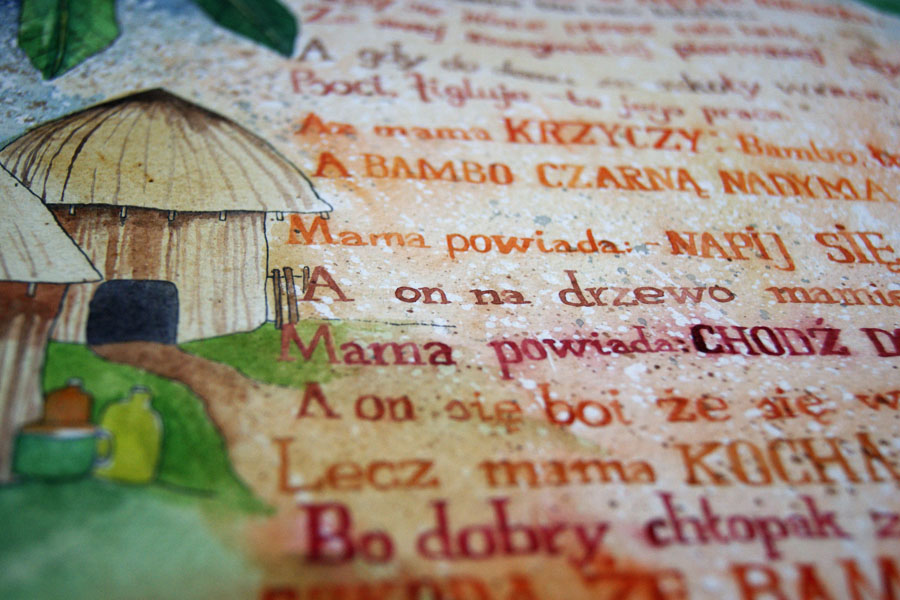 murzyńskiej pierwszej
A gdy do szkoły wraca,
Psoci, figluje - to jego praca.
Aż mama KRZYCZY: Bambo,
A BAMBO CZARNĄ NADYMA
Mama powiada:- NAPIJ SIĘ
A on na drzewo mamie
Mama powiada: CHODŹ D
A on się boi że się w
Lecz mama KOCHA
Bo dobry chłopak z
SZKODA ŻE BAM